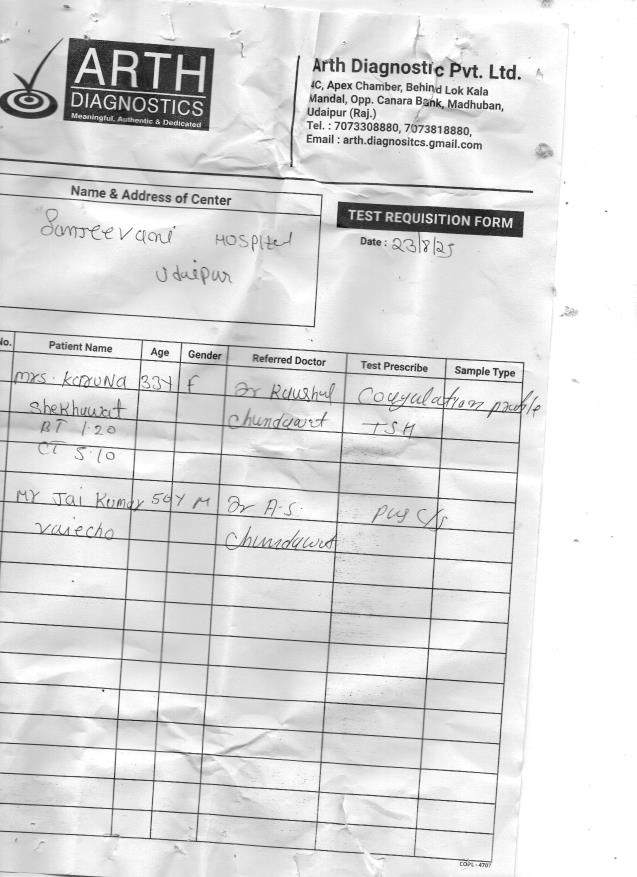 ARTH
DIAGNOSTICS
Meaningful, Authentic & Dedicated
Arth Diagnostic Pvt. Ltd.
4C, Apex Chamber, Behind Lok Kala
Mandal, Opp. Canara Bank, Madhuban,
Udaipur (Raj.)
Tel. : 7073308880, 7073818880,
Email : arth.diagnositcs.gmail.com
Name & Address of Center
Sanjeevani HOSPItal
Udaipur
TEST REQUISITION FORM
Date : 23/8/25
No. Patient Name Age Gender Referred Doctor Test Prescribe Sample Type
Mrs. Karuna 33Y F Dr Kaushal Coagulation profile
Shekhawat Chundawat TSH
BT 1.20
CT 5.10
Mr Jai Kumar 50Y M Dr A.S. pus C/S
Chundawat
COPL - 4707